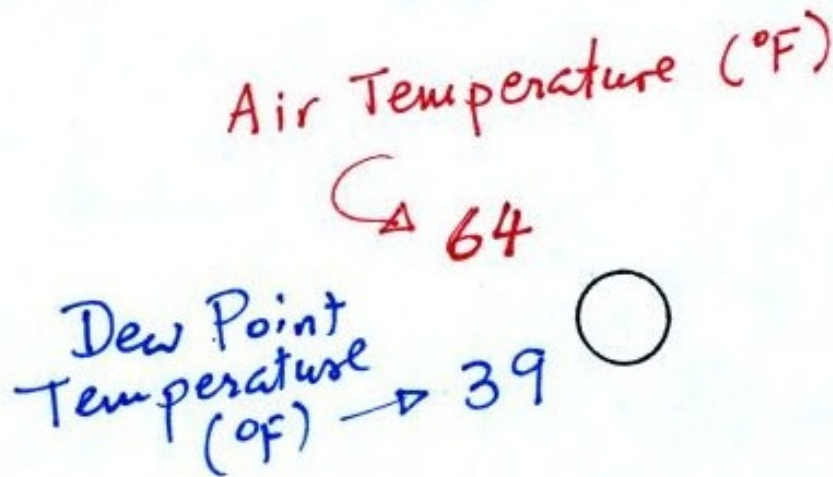 Air Temperature (°F)
64
Dew Point
Temperature
(°F)
39